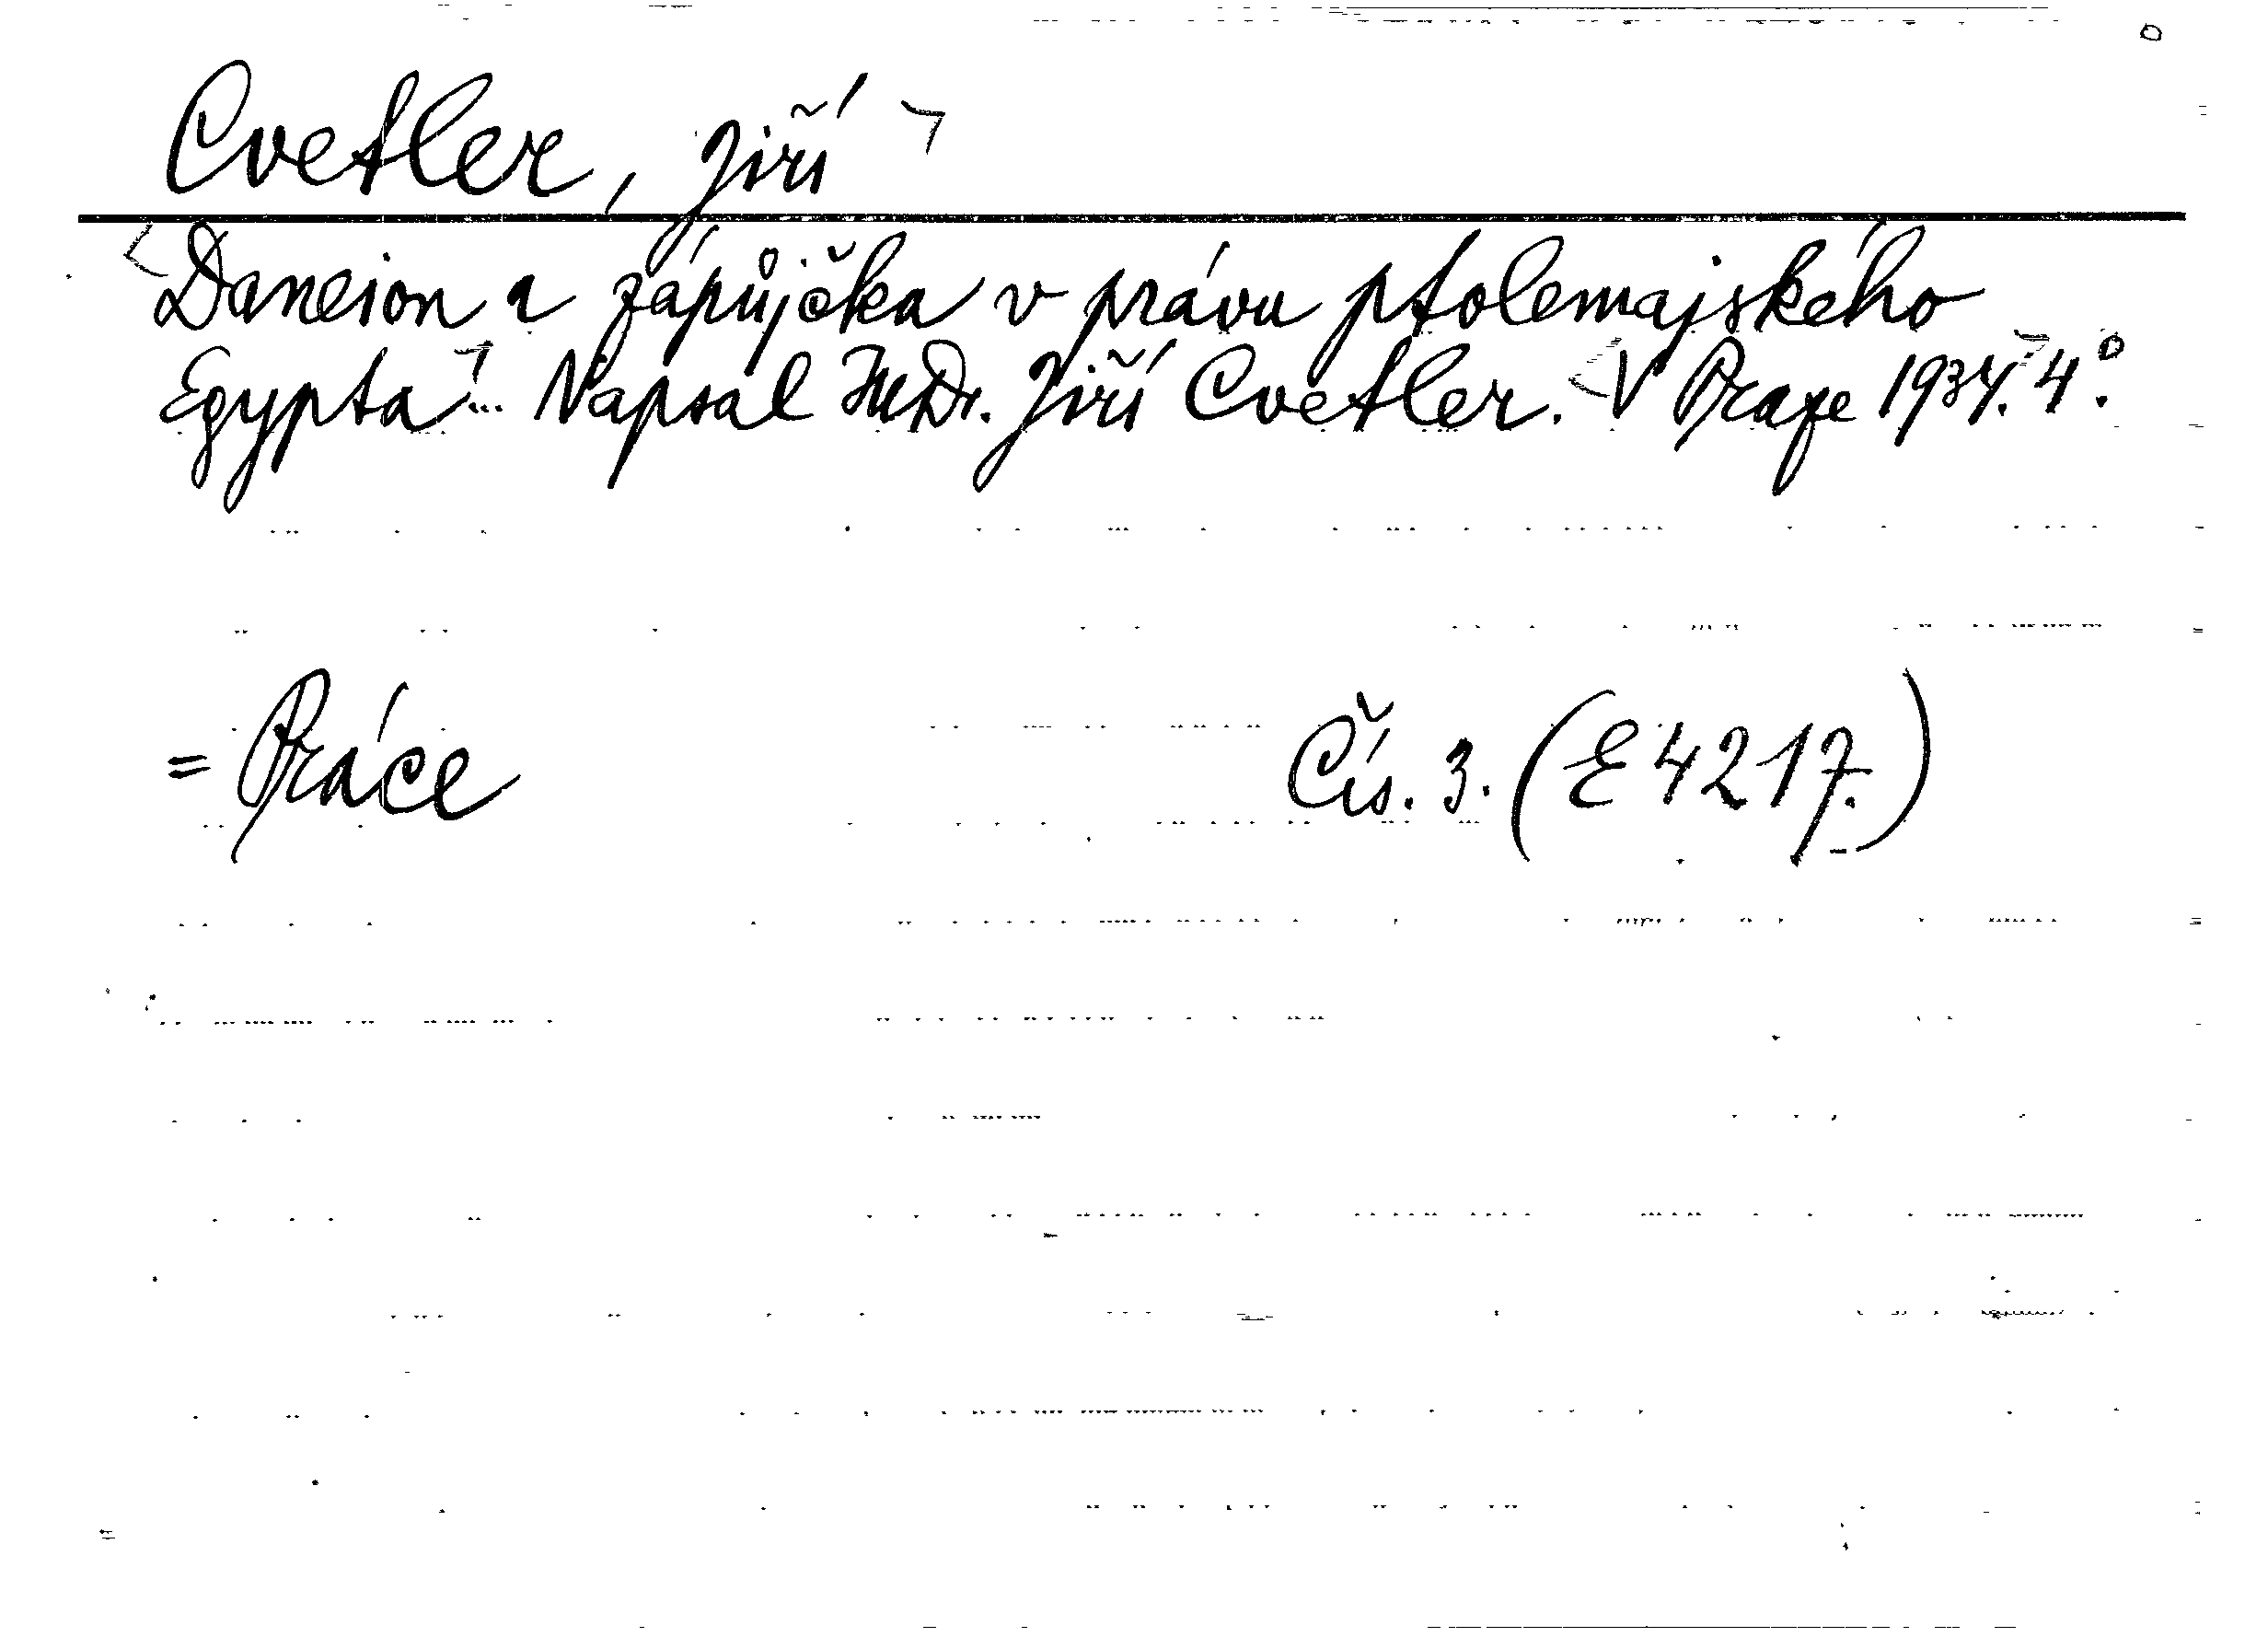 Cvetler, Jiří
Daneion a zápůjčka v právu ptolemajského
Egypta... Napsal JUDr. Jiří Cvetler. V Praze 1934. 4°.
= Práce Čís. 3. (E 4217.)